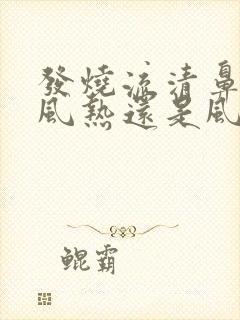 發燒流清鼻
風熱還是風
鯤霸